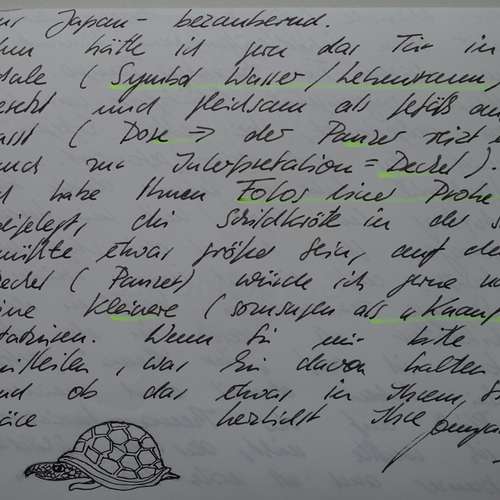 Japan - bezaubernd.
hätte ich gern das Tier in
(Symbol Wasser / Lebensraum,
und gleichsam als Gefäß
(Dose => der Panzer
zur Interpretation = Deckel).
habe Ihnen Fotos einer Probe
die Schildkröte in der
müßte etwas größer sein, auf
(Panzer) würde ich gerne
kleinere (sozusagen als "Knauf
Wenn Sie mir bitte
mitteilen, was Sie davon halten
und ob das etwas in Ihrem
herzlichst Ihre